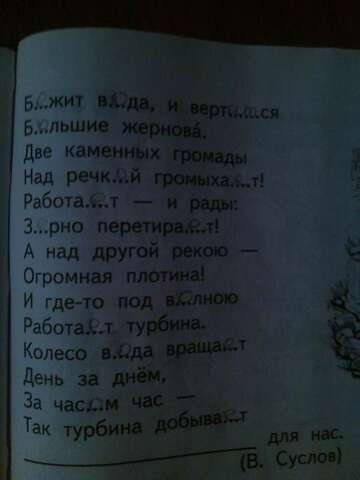 Б...жит в...да, и верт......ся
Б...льшие жернова́.
Две каменных громады
Над речк...й громыха...т!
Работа...т — и рады:
З...рно перетира...т!
А над другой рекою —
Огромная плотина!
И где-то под в...лною
Работа...т турбина.
Колесо в...да враща...т
День за днём,
За час...м час —
Так турбина добыва...т
____________ для нас.
(В. Суслов)